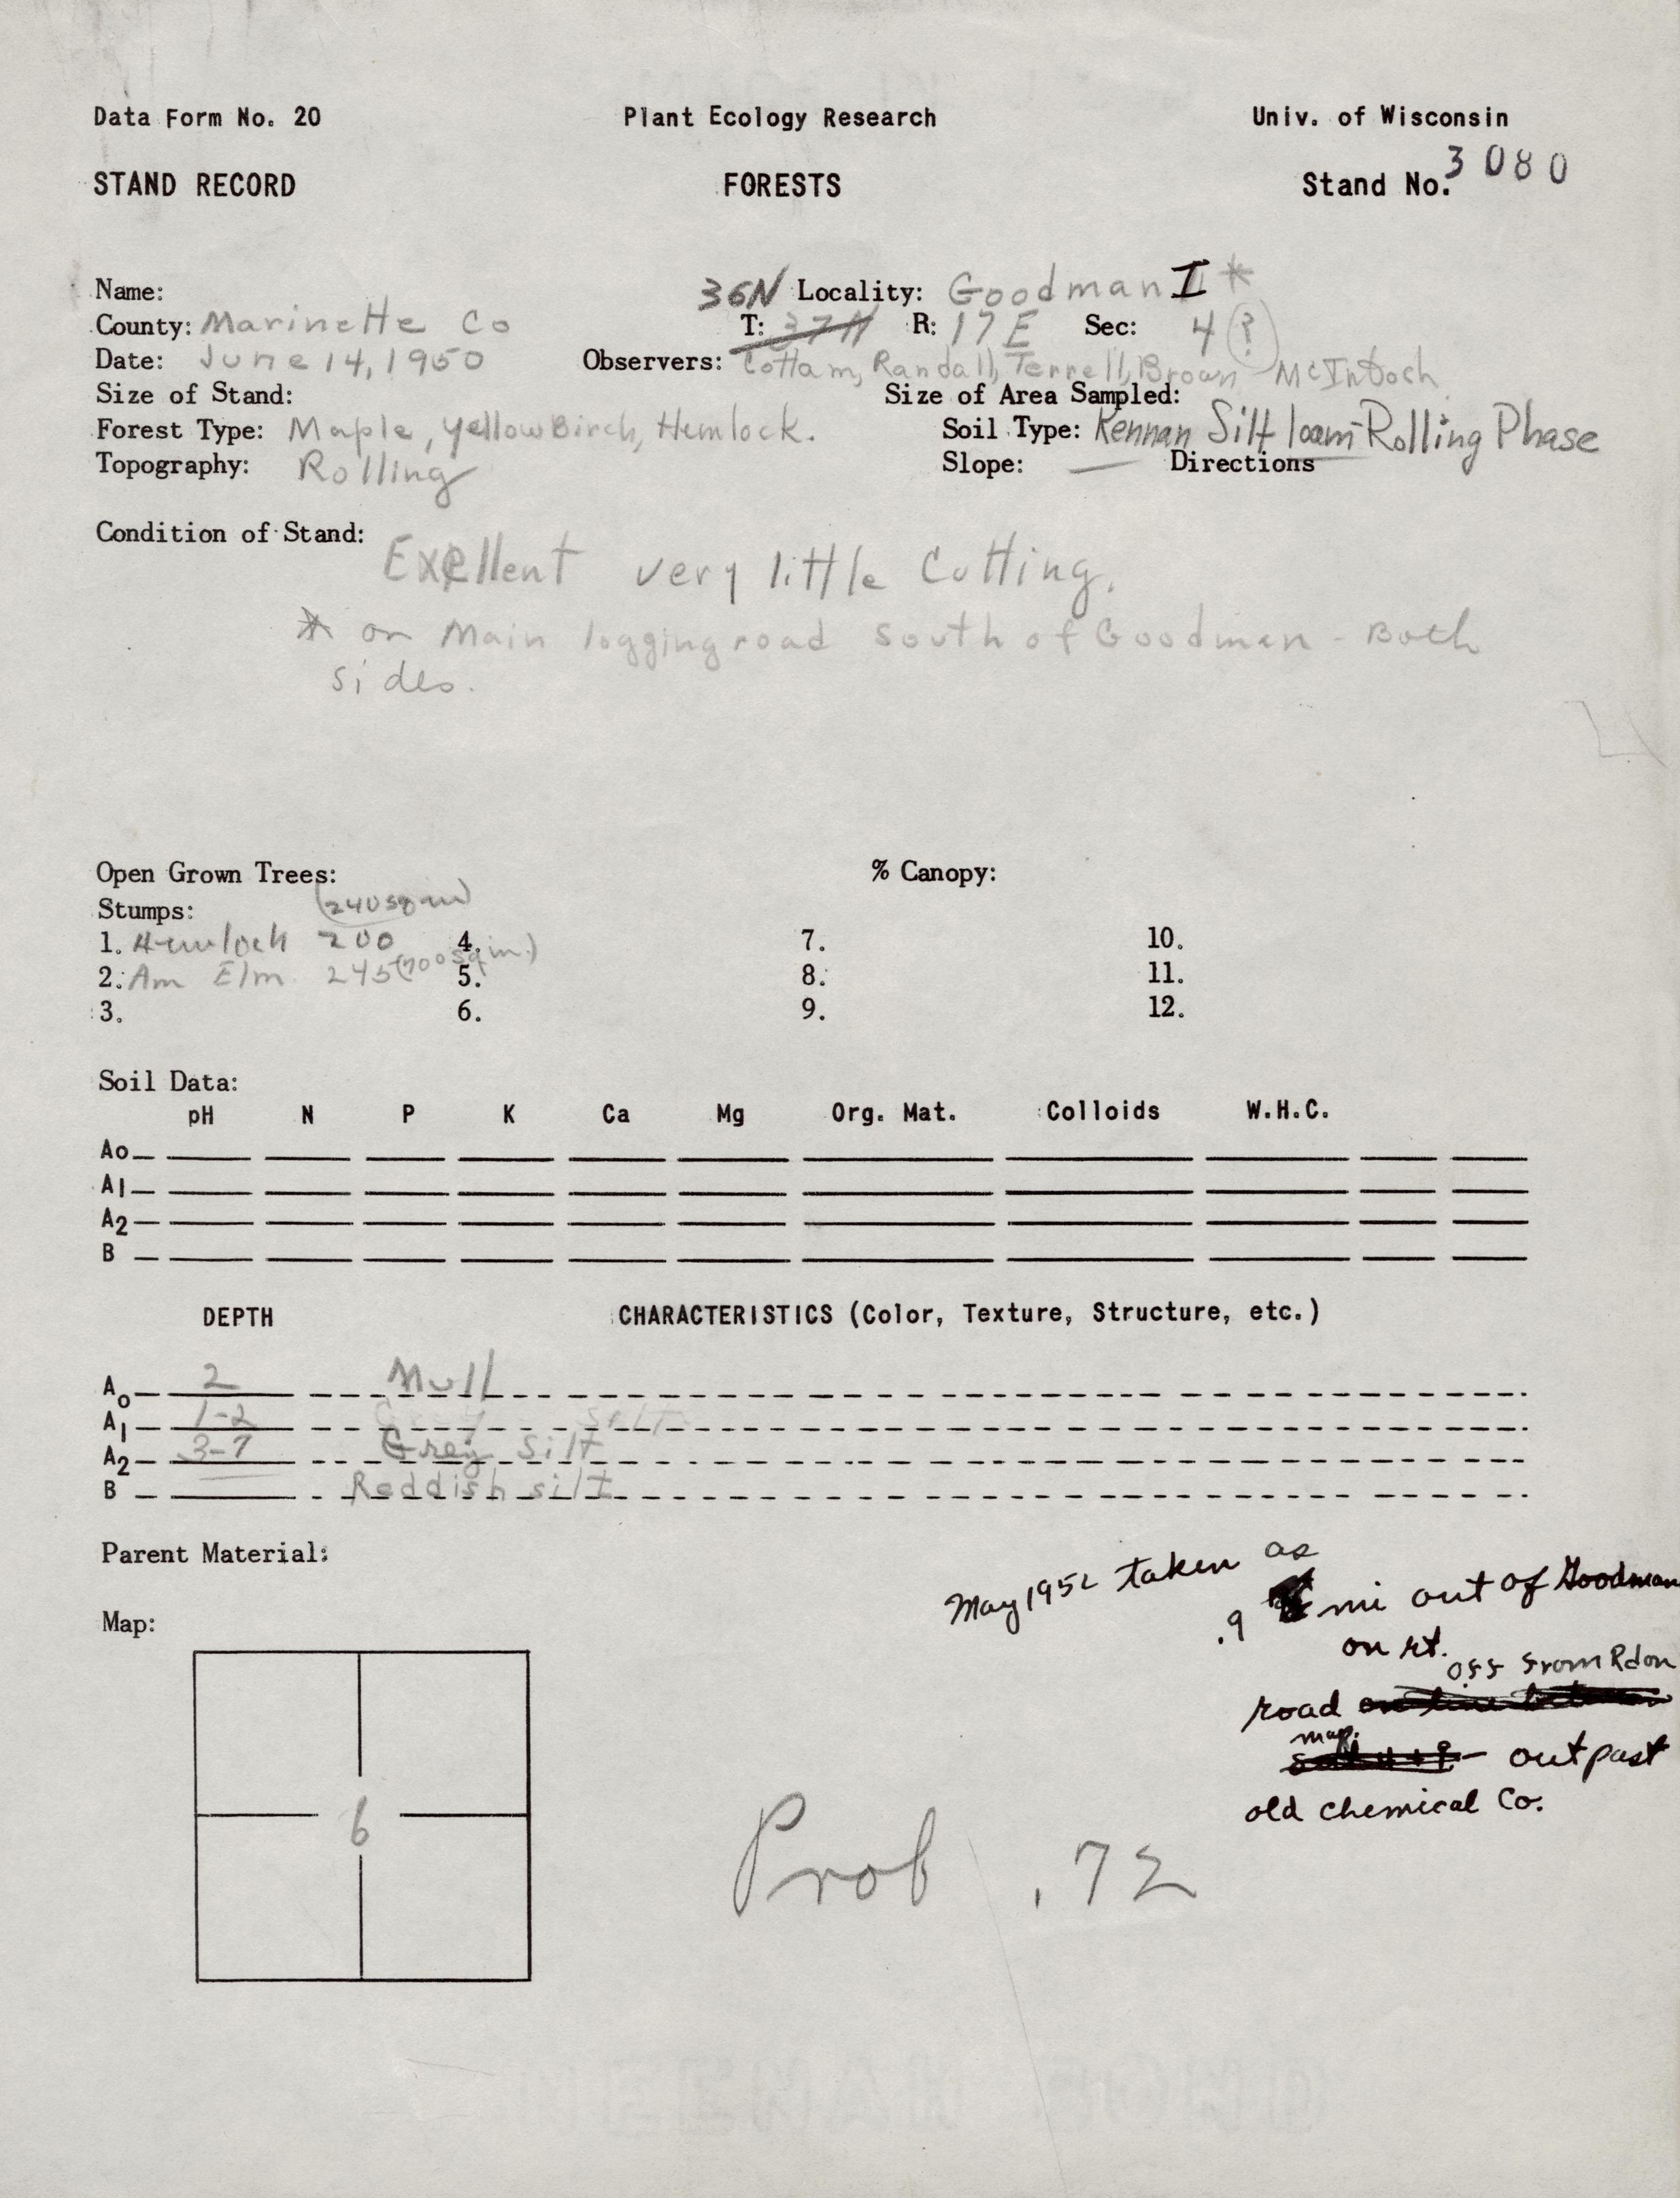 Data Form No. 20 Plant Ecology Research Univ. of Wisconsin
STAND RECORD FORESTS Stand No. 3080
Name: 36N Locality: Goodman I *
County: Marinette Co T: 37N R: 17E Sec: 4 (?)
Date: June 14, 1950 Observers: Cottam, Randall, Terrell, Brown McIntosh
Size of Stand: Size of Area Sampled:
Forest Type: Maple, Yellow Birch, Hemlock. Soil Type: Kennan Silt loam Rolling Phase
Topography: Rolling Slope: — Directions
Condition of Stand:
Exellent very little Cutting.
* on Main logging road south of Goodman - Both
sides.
Open Grown Trees: % Canopy:
Stumps: (240 sq in)
1. Hemlock 200 4. 7. 10.
2. Am Elm 245 (700 sq in.) 5. 8. 11.
3. 6. 9. 12.
Soil Data:
pH N P K Ca Mg Org. Mat. Colloids W.H.C.
Ao
A1
A2
B
DEPTH CHARACTERISTICS (Color, Texture, Structure, etc.)
Ao 2 Mull
A1 1-2
A2 3-7 Grey silt
B Reddish silt
Parent Material:
May 1952 taken as
.9 mi out of Goodman
on rt.
off from Rd on
road
map.
— out past
old chemical Co.
Map:
6
Prob .72